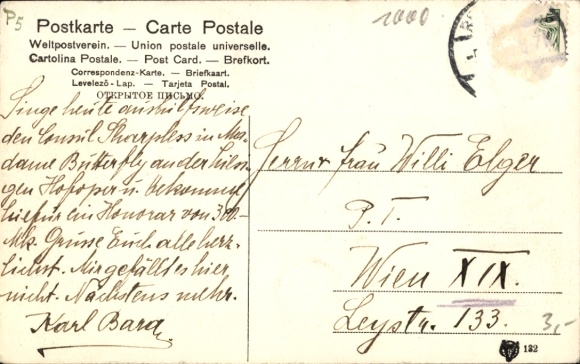 P5
Postkarte — Carte Postale
Weltpostverein. — Union postale universelle.
Cartolina Postale. — Post Card. — Brefkort.
Correspondenz-Karte. — Briefkaart.
Levelező-Lap. — Tarjeta Postal.
ОТКРЫТОЕ ПИСЬМО.
1000
Singe heute aushilfsweise
den Consul Sharpless in Ma-
dame Butterfly an der hiesi-
gen Hofoper u. bekomme
hiefür ein Honorar von 300-
Mk. Grüsse Euch alle herz-
lichst. Mir gefällt es hier
nicht. Nächstens mehr.
Karl Bara
Herrn u. Frau Willi Elger
P. T.
Wien XIX.
Leystr. 133.
3,-
132